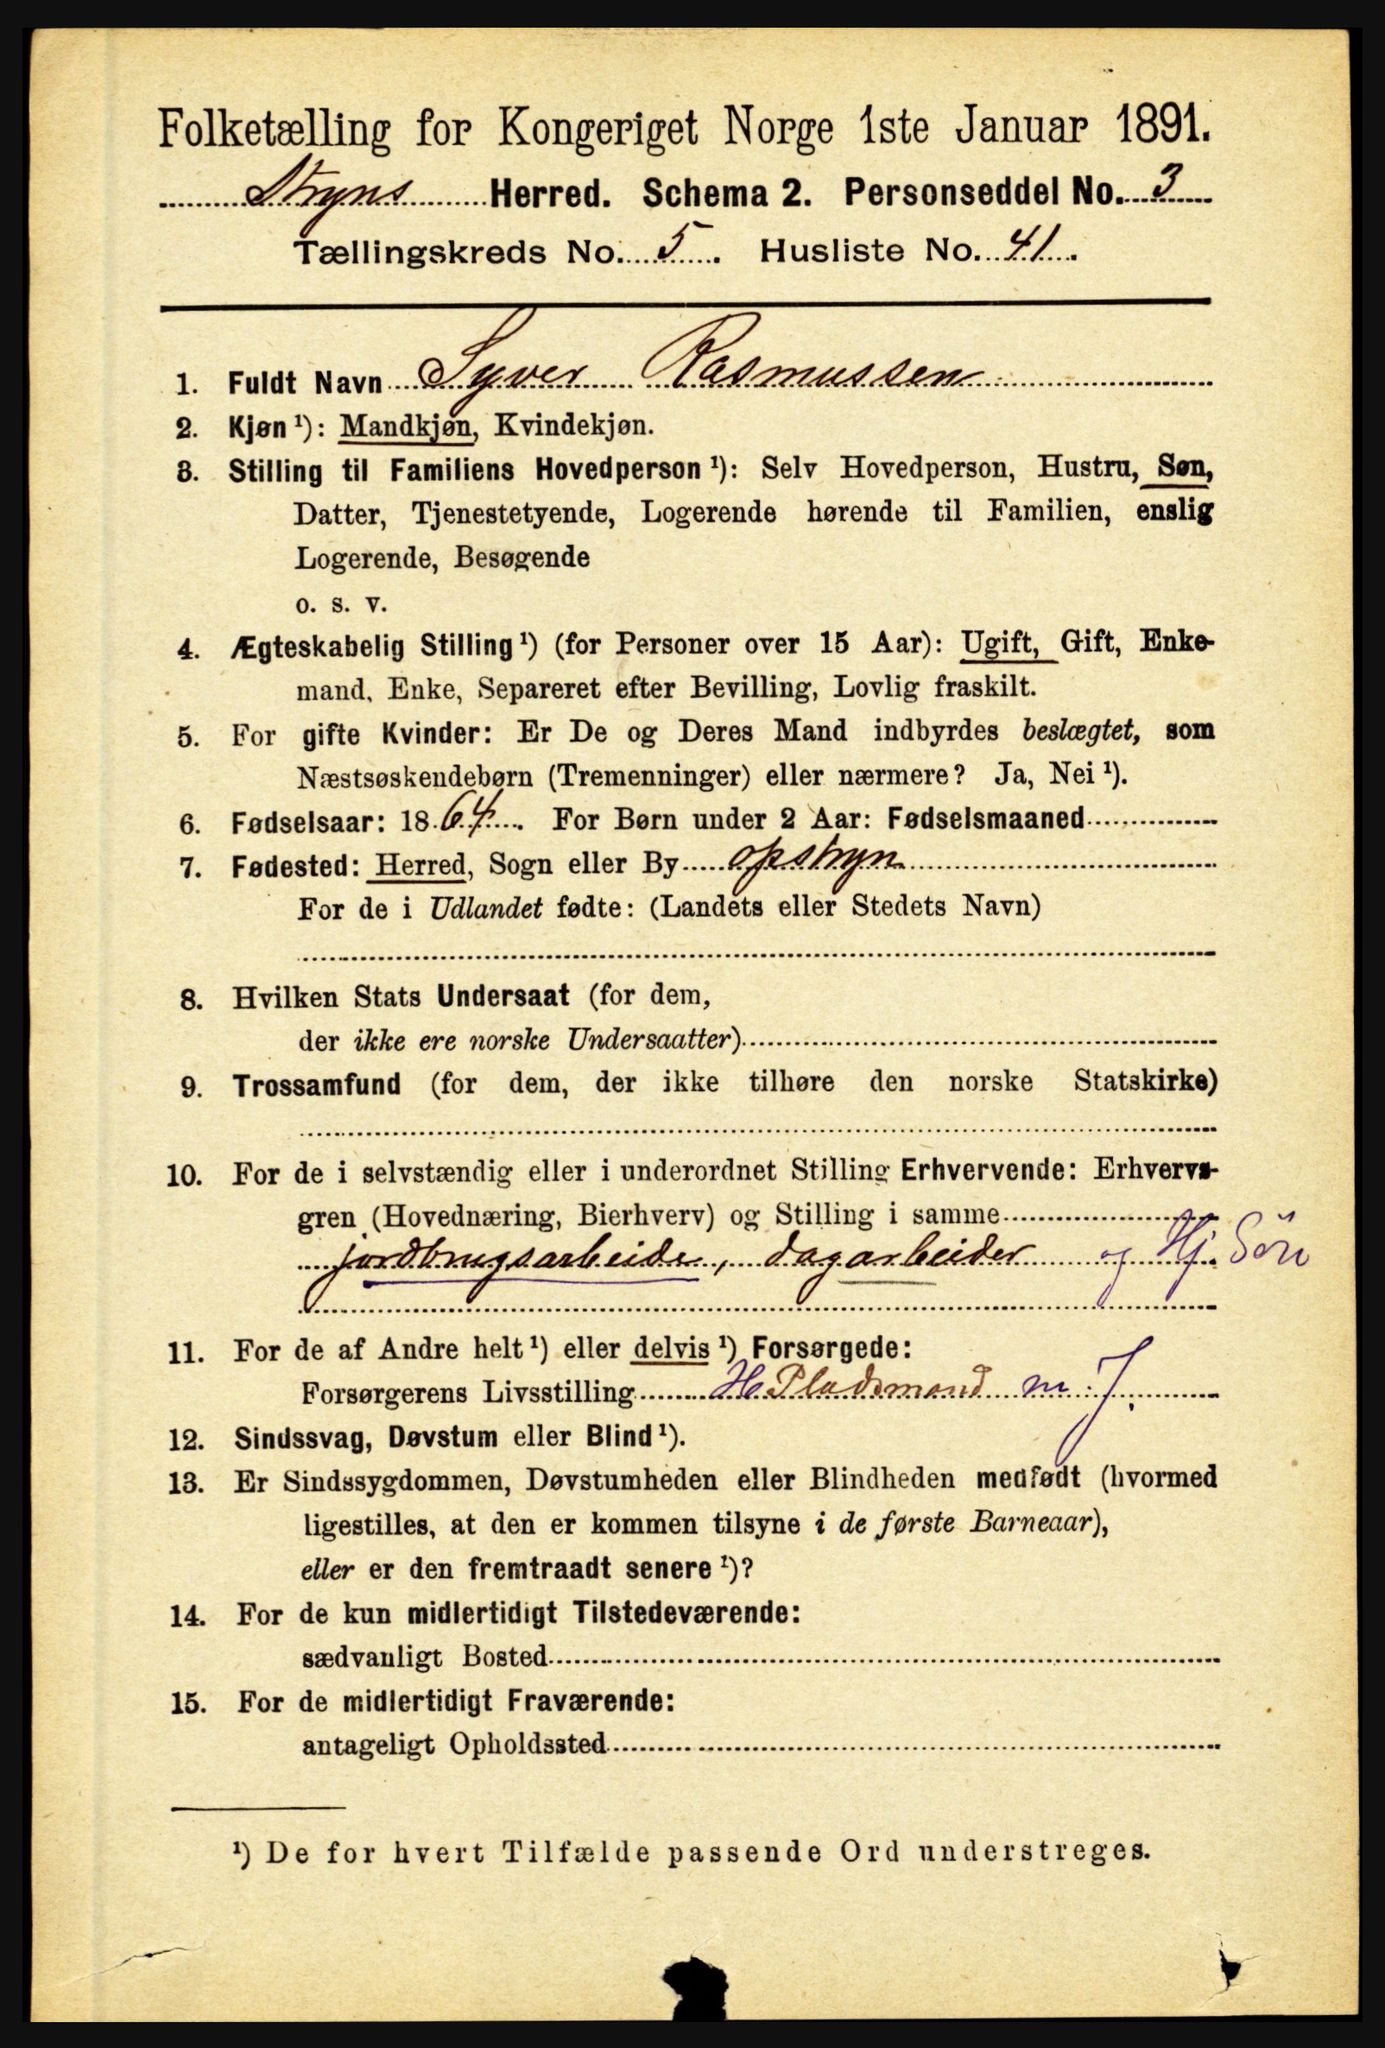 Folketælling for Kongeriget Norge 1ste Januar 1891.
Stryns Herred. Schema 2. Personseddel No. 3
Tællingskreds No. 5. Husliste No. 41.
1. Fuldt Navn Syver Rasmussen
2. Kjøn ¹): Mandkjøn, Kvindekjøn.
3. Stilling til Familiens Hovedperson ¹): Selv Hovedperson, Hustru, Søn,
Datter, Tjenestetyende, Logerende hørende til Familien, enslig
Logerende, Besøgende
o. s. v.
4. Ægteskabelig Stilling ¹) (for Personer over 15 Aar): Ugift, Gift, Enke-
mand, Enke, Separeret efter Bevilling, Lovlig fraskilt.
5. For gifte Kvinder: Er De og Deres Mand indbyrdes beslægtet, som
Næstsøskendebørn (Tremenninger) eller nærmere? Ja, Nei ¹).
6. Fødselsaar: 1864. For Børn under 2 Aar: Fødselsmaaned
7. Fødested: Herred, Sogn eller By opstryn
For de i Udlandet fødte: (Landets eller Stedets Navn)
8. Hvilken Stats Undersaat (for dem,
der ikke ere norske Undersaatter)
9. Trossamfund (for dem, der ikke tilhøre den norske Statskirke)
10. For de i selvstændig eller i underordnet Stilling Erhvervende: Erhvervs-
gren (Hovednæring, Bierhverv) og Stilling i samme
jordbrugsarbeide, dagarbeider og Hj. Søn
11. For de af Andre helt ¹) eller delvis ¹) Forsørgede:
Forsørgerens Livsstilling H Pladsmand m. J.
12. Sindssvag, Døvstum eller Blind ¹).
13. Er Sindssygdommen, Døvstumheden eller Blindheden medfødt (hvormed
ligestilles, at den er kommen tilsyne i de første Barneaar),
eller er den fremtraadt senere ¹)?
14. For de kun midlertidigt Tilstedeværende:
sædvanligt Bosted
15. For de midlertidigt Fraværende:
antageligt Opholdssted
¹) De for hvert Tilfælde passende Ord understreges.